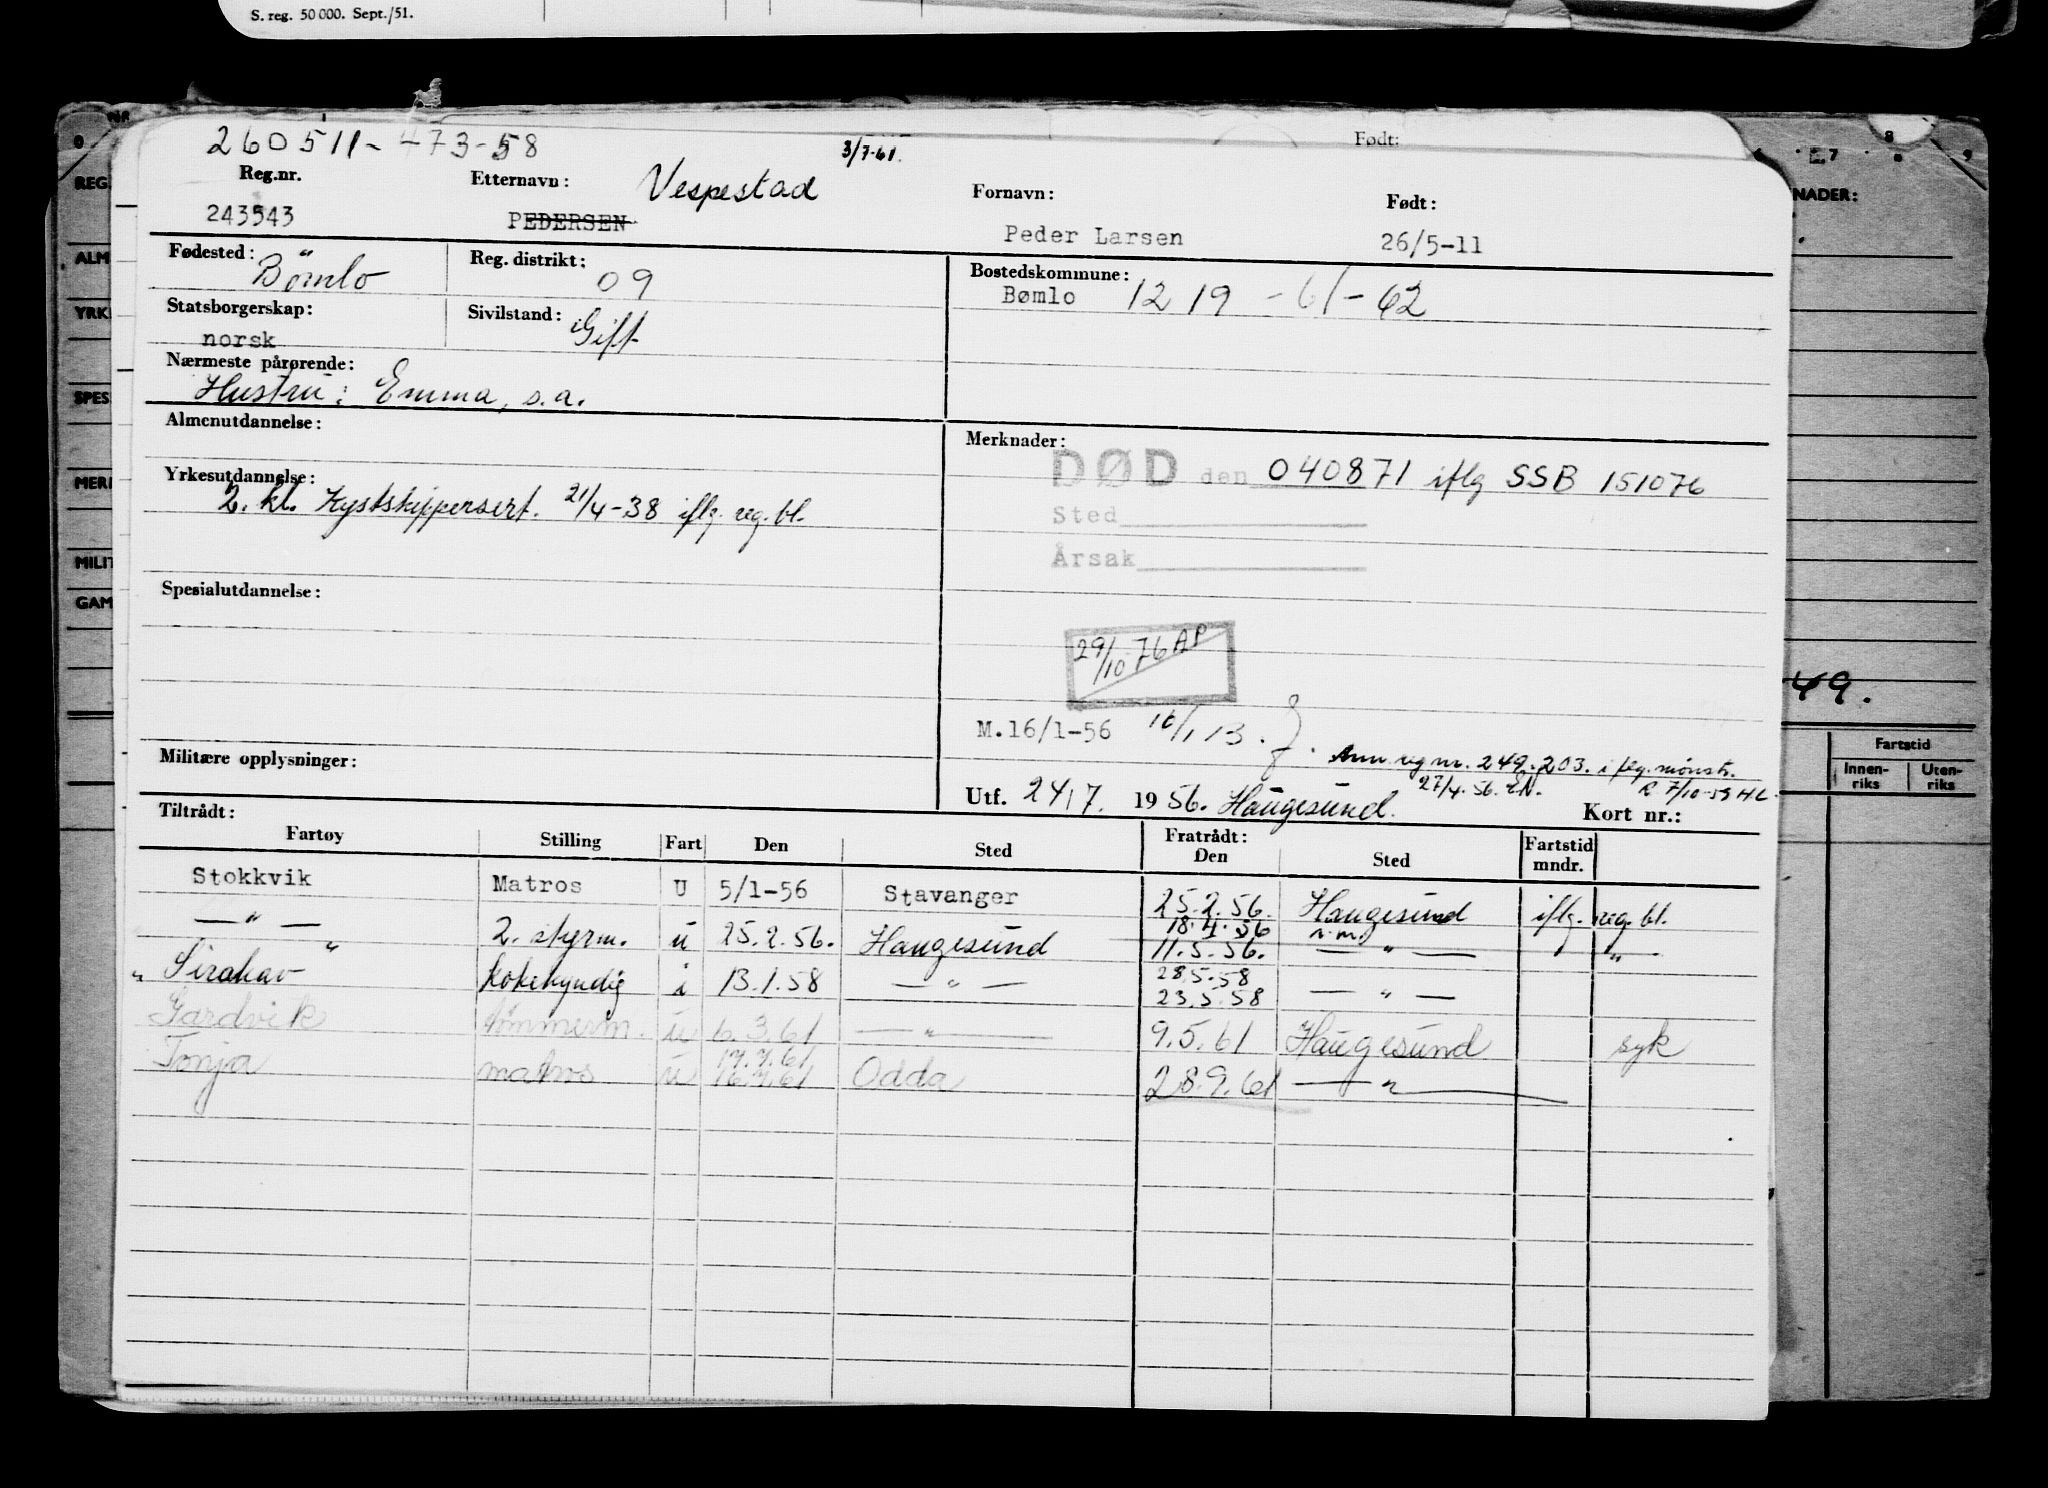 S. reg. 50 000. Sept./51.
260511-473-58
3/7-61.
Født:
Reg.nr.
Etternavn:
Vespestad
Fornavn:
Født:
243543
PEDERSEN
Peder Larsen
26/5-11
Fødested:
Bömlo
Reg. distrikt:
09
Bostedskommune:
Bømlo 1219-61-62
Statsborgerskap:
norsk
Sivilstand:
Gift
Nærmeste pårørende:
Hustru: Emma, s.a.
Almenutdannelse:
Merknader:
DØD den 040871 iflg SSB 151076
Yrkesutdannelse:
2. kl. Kystskippersert. 21/4-38 iflg. reg. bl.
Sted
Årsak
Spesialutdannelse:
29/10 76 AP
M.16/1-56 16/1 13.
Militære opplysninger:
Ann reg nr. 249.203. iflg. mønstr.
27/4.56. EN. R. 7/10-59 HL.
Utf. 24/7. 1956. Haugesund.
Kort nr.:
Tiltrådt:
Fratrådt:
Fartøy Stilling Fart Den Sted Den Sted Fartstid mndr.
Stokkvik Matros U 5/1-56 Stavanger 25.2.56. Haugesund iflg. reg. bl.
18.4.56 n.m.
— " — 2. styrm. u 25.2.56. Haugesund 11.5.56. — " — "
28.5.58
" Sirahav kokekyndig i 13.1.58 — " — 23.5.58 — " —
Gardvik tømmerm. u 6.3.61 — " — 9.5.61 Haugesund syk
17.7.61
Tonja matros u 16.7.61 Odda 28.9.61 — " —
REG.
ALM
YRK
SPES
MERK
MILIT
GAM
NADER:
49.
Fartstid
Innen-riks
Uten-riks